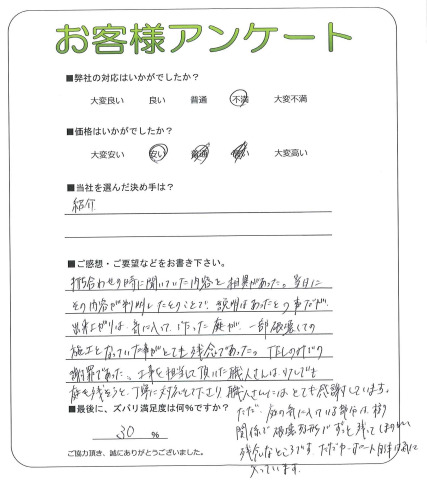 お客様アンケート
■弊社の対応はいかがでしたか？
大変良い 良い 普通 不満 大変不満
■価格はいかがでしたか？
大変安い 安い 普通 高い 大変高い
■当社を選んだ決め手は？
紹介
■ご感想・ご要望などをお書き下さい。
打ち合わせの時に聞いていた内容と相異があった。当日に
その内容が判明したとのことで、説明はあったとの事だが、
出来上がりは、気に入って作った庭が、一部破壊しての
施工となっていた事がとても残念であった。TELのみでの
謝罪であった。工事を担当して頂いた職人さんは、
庭を残そうと、丁寧に対応して下さり職人さんにはとても感謝しています。
■最後に、ズバリ満足度は何%ですか？
30 %
ただ、庭の気に入っている部分は
関係で破壊 がずっと残ってしまい
残念なところです ただカーポート自体は気に
入っています。
ご協力頂き、誠にありがとうございました。